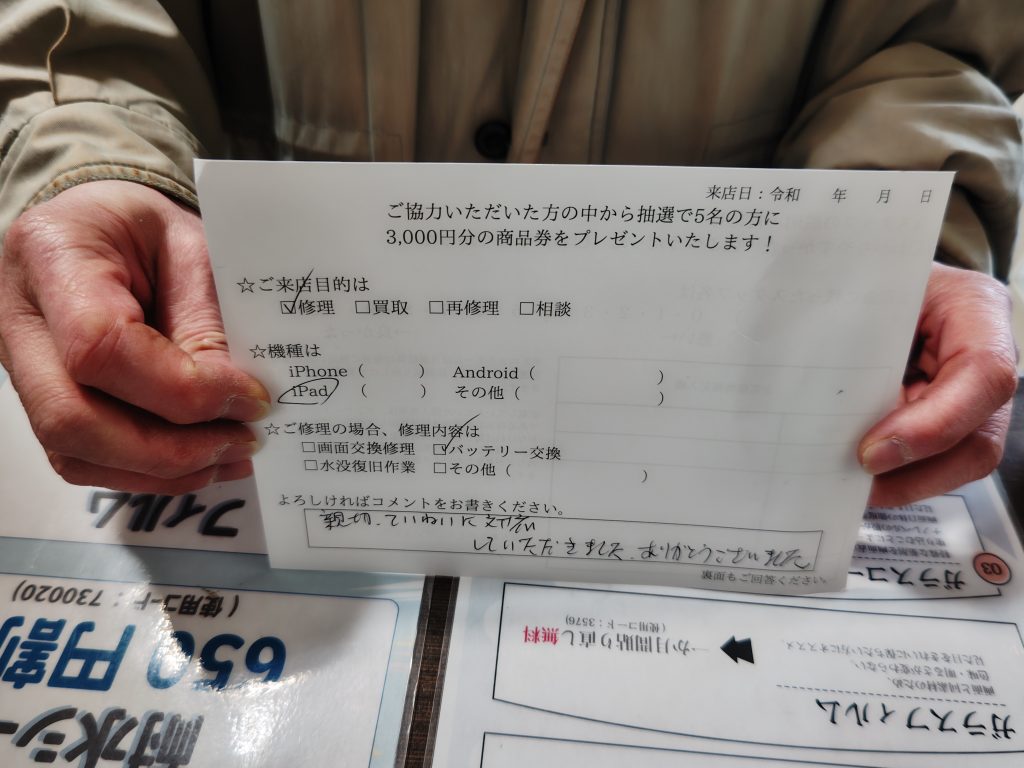 来店日：令和　　年　　月　　日
ご協力いただいた方の中から抽選で5名の方に
3,000円分の商品券をプレゼントいたします！
☆ご来店目的は
☑修理　☐買取　☐再修理　☐相談
☆機種は
iPhone（　　　　）　Android（　　　　　　　　　）
iPad　（　　　　）　その他（　　　　　　　　　）
☆ご修理の場合、修理内容は
☐画面交換修理　☑バッテリー交換
☐水没復旧作業　☐その他（　　　　　　　　　）
よろしければコメントをお書きください。
親切、ていねいに対応
していただきました、ありがとうございました
裏面もご回答ください
フィルム
（使用コード：730020）
650円割
耐水シー
03
ガラスコー
一か月間貼り直し無料
（使用コード：3576）
ガラスフィルム
画面と同素材のため、
色味・明るさが変わらない、
見た目をきれいに保ちたい方にオススメ